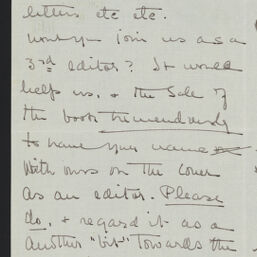 letters etc etc.
Won't you join us as a
3rd editor? It would
help us, & the Sale of
the book tremendously
to have your name
With ours on the cover
as an editor. Please
do, & regard it as a
another "bit" Towards the